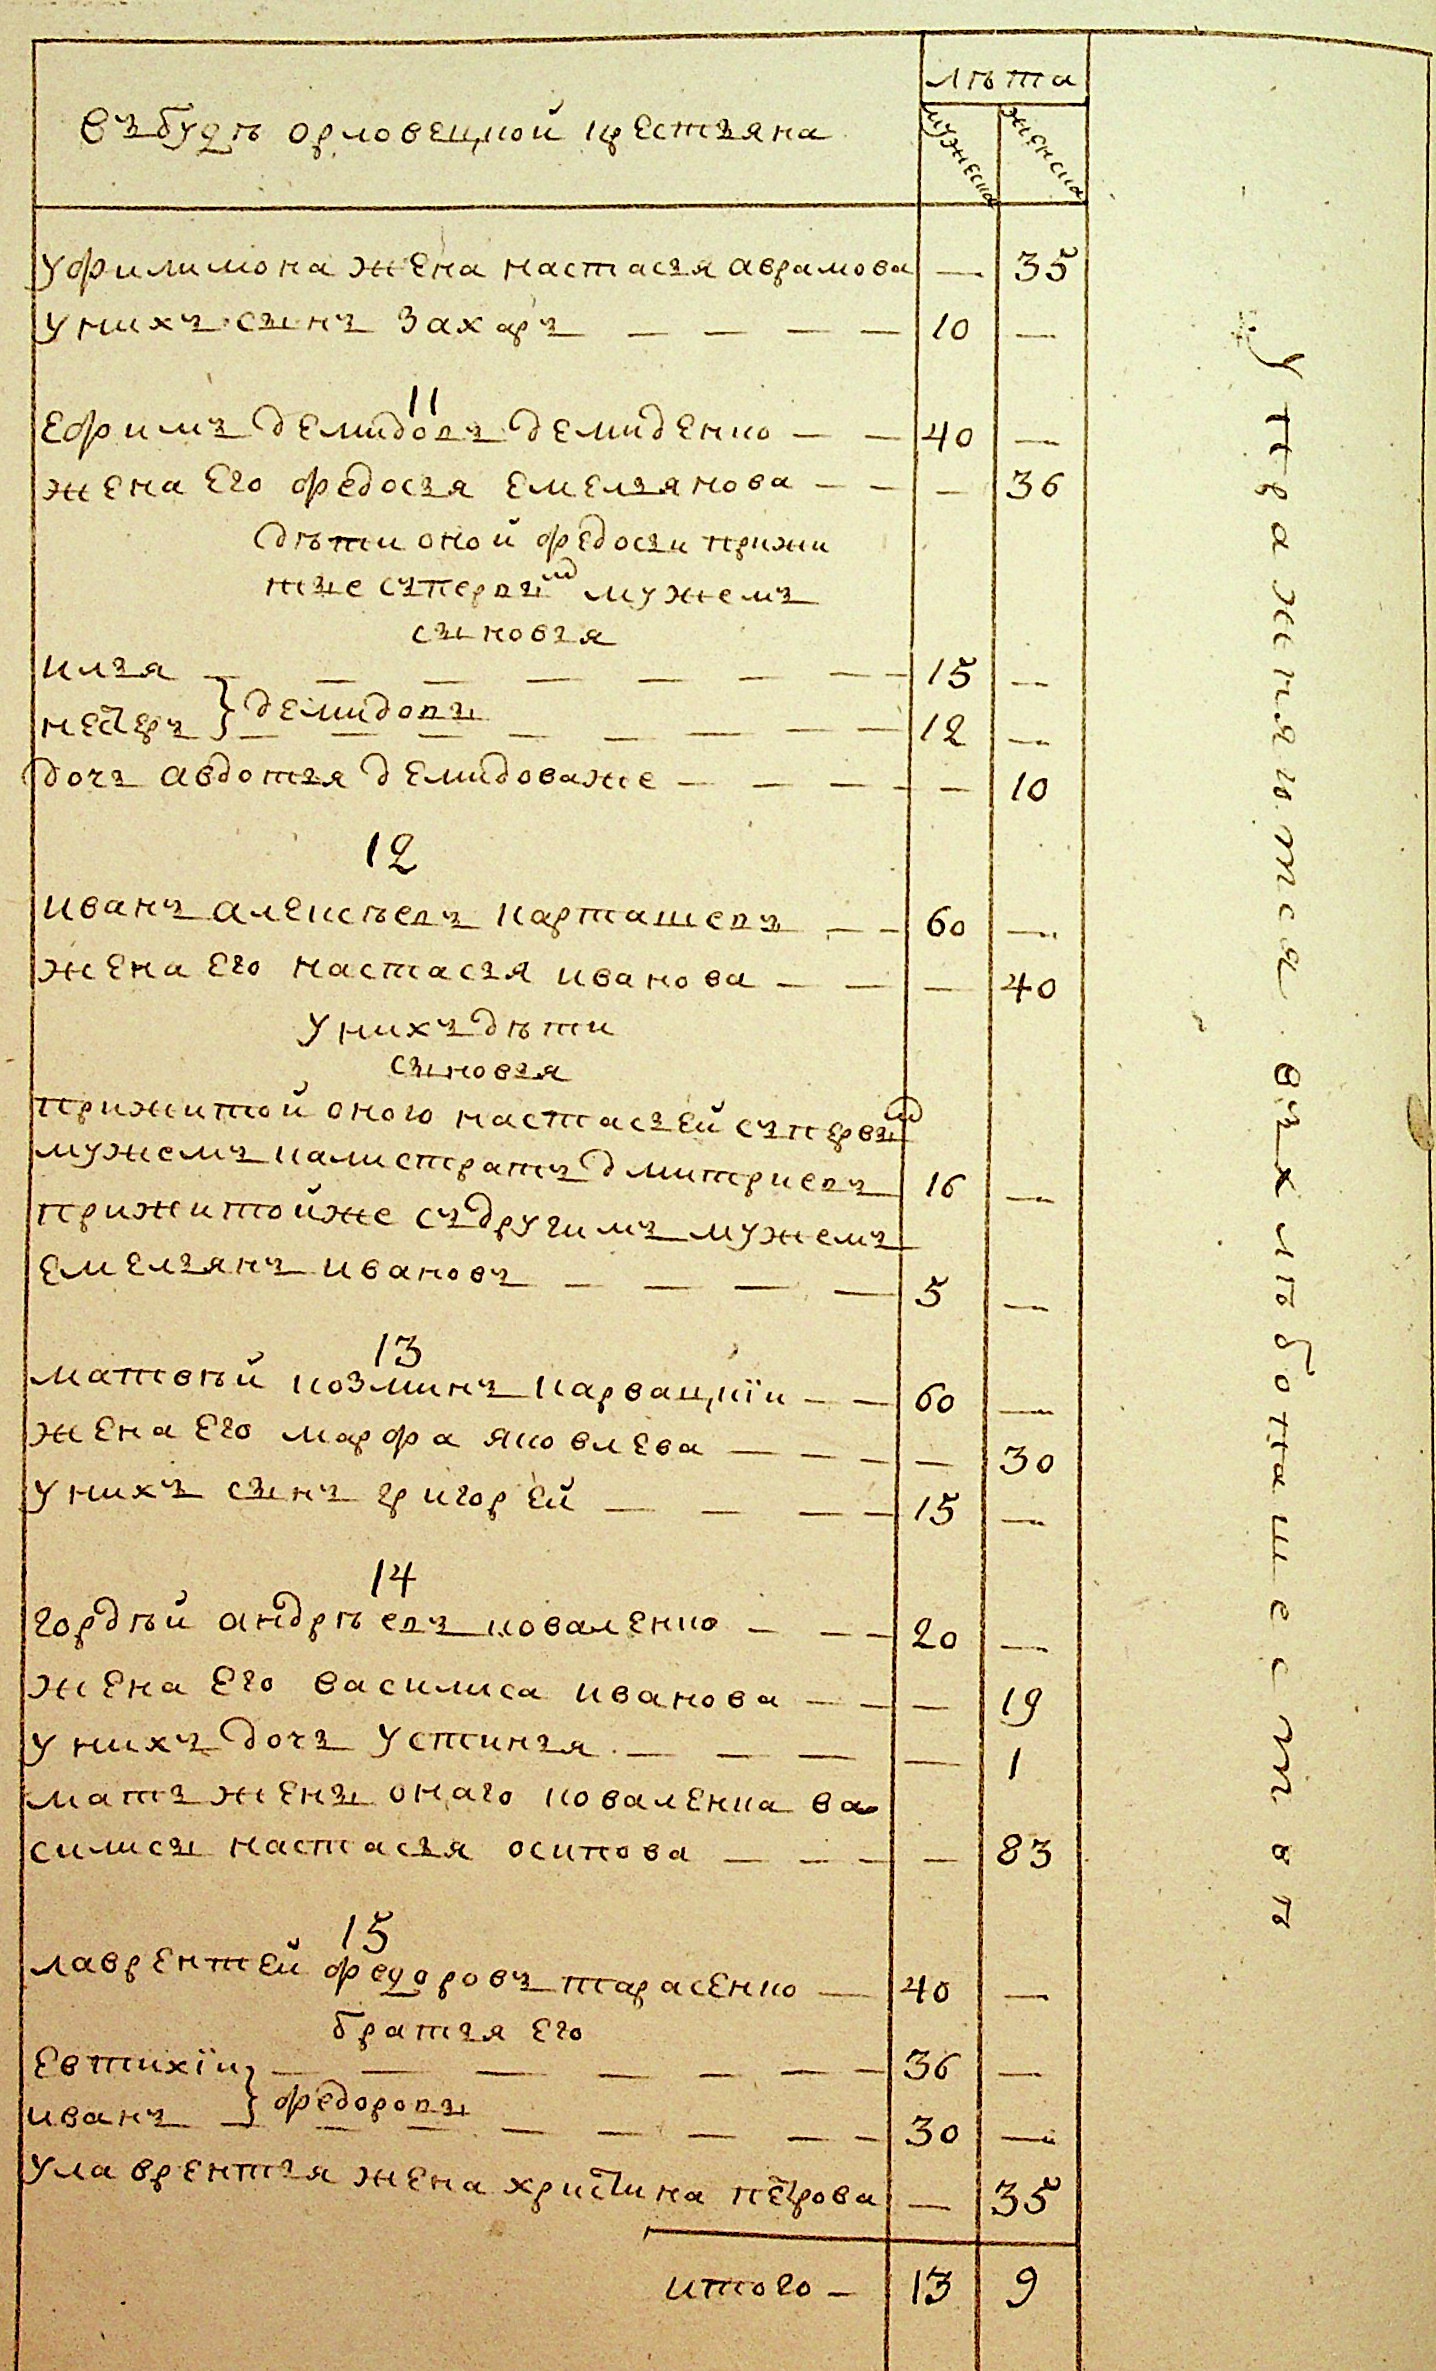 лѣта
въ будѣ орловецкой крестьяна
мужеска
женска
у филимона жена настасья аврамова — 35
у нихъ сынъ захаръ — — — — 10 —
11
ефимъ демидовъ демиденко — — 40 —
жена его федосья емельянова — — — 36
дѣти оной федосьи прижи
тые съ первым мужемъ
сыновья
илья — — — — — — — — 15 —
петръ } демидовы — — — — — — — — 12 —
дочь авдотья демидоваже — — — — — 10
12
иванъ алексѣевъ карташевъ — — 60 —
жена его настасья иванова — — — 40
у нихъ дѣти
сыновья
прижитой оного настасьей съ первым
мужемъ калистратъ дмитриевъ 16 —
прижитойже съ другимъ мужемъ
емельянъ ивановъ — — — — 5 —
13
матвѣй козминъ карвацкїи — — 60 —
жена его марфа яковлева — — — — — 30
у нихъ сынъ григорей — — — — 15 —
14
гордѣй андрѣевъ коваленко — — — 20 —
жена его василиса иванова — — — 19
у нихъ дочь устинья — — — — 1
мать жены онаго коваленка ва
силисы настасья осипова — — — — 83
15
лаврентей федоровъ тарасенко — 40 —
братья его
евтихїи — — — — — — — 36 —
иванъ } федоровы — — — — — — — — 30 —
у лаврентья жена христина петрова — 35
итого — 13 9
упражняются въ хлѣбопашествѣ